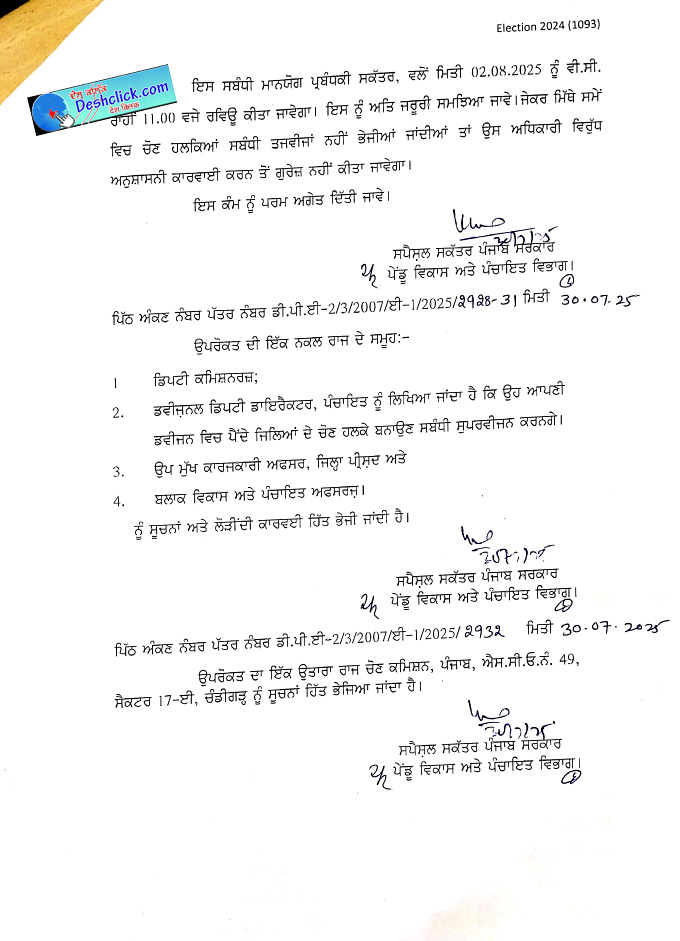 Election 2024 (1093)
ਦੇਸ਼ ਕਲਿੱਕ
Deshclick.com
ਦੇਸ਼ ਕਲਿਕ
ਇਸ ਸਬੰਧੀ ਮਾਨਯੋਗ ਪ੍ਰਬੰਧਕੀ ਸਕੱਤਰ, ਵਲੋਂ ਮਿਤੀ 02.08.2025 ਨੂੰ ਵੀ.ਸੀ.
ਰਾਹੀਂ 11.00 ਵਜੇ ਰਵਿਊ ਕੀਤਾ ਜਾਵੇਗਾ। ਇਸ ਨੂੰ ਅਤਿ ਜਰੂਰੀ ਸਮਝਿਆ ਜਾਵੇ।ਜੇਕਰ ਮਿੱਥੇ ਸਮੇਂ
ਵਿਚ ਚੋਣ ਹਲਕਿਆਂ ਸਬੰਧੀ ਤਜਵੀਜਾਂ ਨਹੀਂ ਭੇਜੀਆਂ ਜਾਂਦੀਆਂ ਤਾਂ ਉਸ ਅਧਿਕਾਰੀ ਵਿਰੁੱਧ
ਅਨੁਸ਼ਾਸਨੀ ਕਾਰਵਾਈ ਕਰਨ ਤੋਂ ਗੁਰੇਜ਼ ਨਹੀਂ ਕੀਤਾ ਜਾਵੇਗਾ।
ਇਸ ਕੰਮ ਨੂੰ ਪਰਮ ਅਗੇਤ ਦਿੱਤੀ ਜਾਵੇ।
ਸਪੈਸ਼ਲ ਸਕੱਤਰ ਪੰਜਾਬ ਸਰਕਾਰ
ਪੇਂਡੂ ਵਿਕਾਸ ਅਤੇ ਪੰਚਾਇਤ ਵਿਭਾਗ।
ਪਿੱਠ ਅੰਕਣ ਨੰਬਰ ਪੱਤਰ ਨੰਬਰ ਡੀ.ਪੀ.ਈ-2/3/2007/ਈ-1/2025/2928-31 ਮਿਤੀ 30.07.25
ਉਪਰੋਕਤ ਦੀ ਇੱਕ ਨਕਲ ਰਾਜ ਦੇ ਸਮੂਹ:-
1 ਡਿਪਟੀ ਕਮਿਸ਼ਨਰਜ਼;
2. ਡਵੀਜ਼ਨਲ ਡਿਪਟੀ ਡਾਇਰੈਕਟਰ, ਪੰਚਾਇਤ ਨੂੰ ਲਿਖਿਆ ਜਾਂਦਾ ਹੈ ਕਿ ਉਹ ਆਪਣੀ
ਡਵੀਜਨ ਵਿਚ ਪੈਂਦੇ ਜਿਲਿਆਂ ਦੇ ਚੋਣ ਹਲਕੇ ਬਨਾਉਣ ਸਬੰਧੀ ਸੁਪਰਵੀਜਨ ਕਰਨਗੇ।
3. ਉਪ ਮੁੱਖ ਕਾਰਜਕਾਰੀ ਅਫਸਰ, ਜਿਲ੍ਹਾ ਪ੍ਰੀਸ਼ਦ ਅਤੇ
4. ਬਲਾਕ ਵਿਕਾਸ ਅਤੇ ਪੰਚਾਇਤ ਅਫਸਰਜ਼।
ਨੂੰ ਸੂਚਨਾਂ ਅਤੇ ਲੋੜੀਂਦੀ ਕਾਰਵਈ ਹਿੱਤ ਭੇਜੀ ਜਾਂਦੀ ਹੈ।
ਸਪੈਸ਼ਲ ਸਕੱਤਰ ਪੰਜਾਬ ਸਰਕਾਰ
ਪੇਂਡੂ ਵਿਕਾਸ ਅਤੇ ਪੰਚਾਇਤ ਵਿਭਾਗ।
ਪਿੱਠ ਅੰਕਣ ਨੰਬਰ ਪੱਤਰ ਨੰਬਰ ਡੀ.ਪੀ.ਈ-2/3/2007/ਈ-1/2025/ 2932 ਮਿਤੀ 30.07.2025
ਉਪਰੋਕਤ ਦਾ ਇੱਕ ਉਤਾਰਾ ਰਾਜ ਚੋਣ ਕਮਿਸ਼ਨ, ਪੰਜਾਬ, ਐਸ.ਸੀ.ਓ.ਨੰ. 49,
ਸੈਕਟਰ 17-ਈ, ਚੰਡੀਗੜ੍ਹ ਨੂੰ ਸੂਚਨਾਂ ਹਿੱਤ ਭੇਜਿਆ ਜਾਂਦਾ ਹੈ।
ਸਪੈਸ਼ਲ ਸਕੱਤਰ ਪੰਜਾਬ ਸਰਕਾਰ
ਪੇਂਡੂ ਵਿਕਾਸ ਅਤੇ ਪੰਚਾਇਤ ਵਿਭਾਗ।